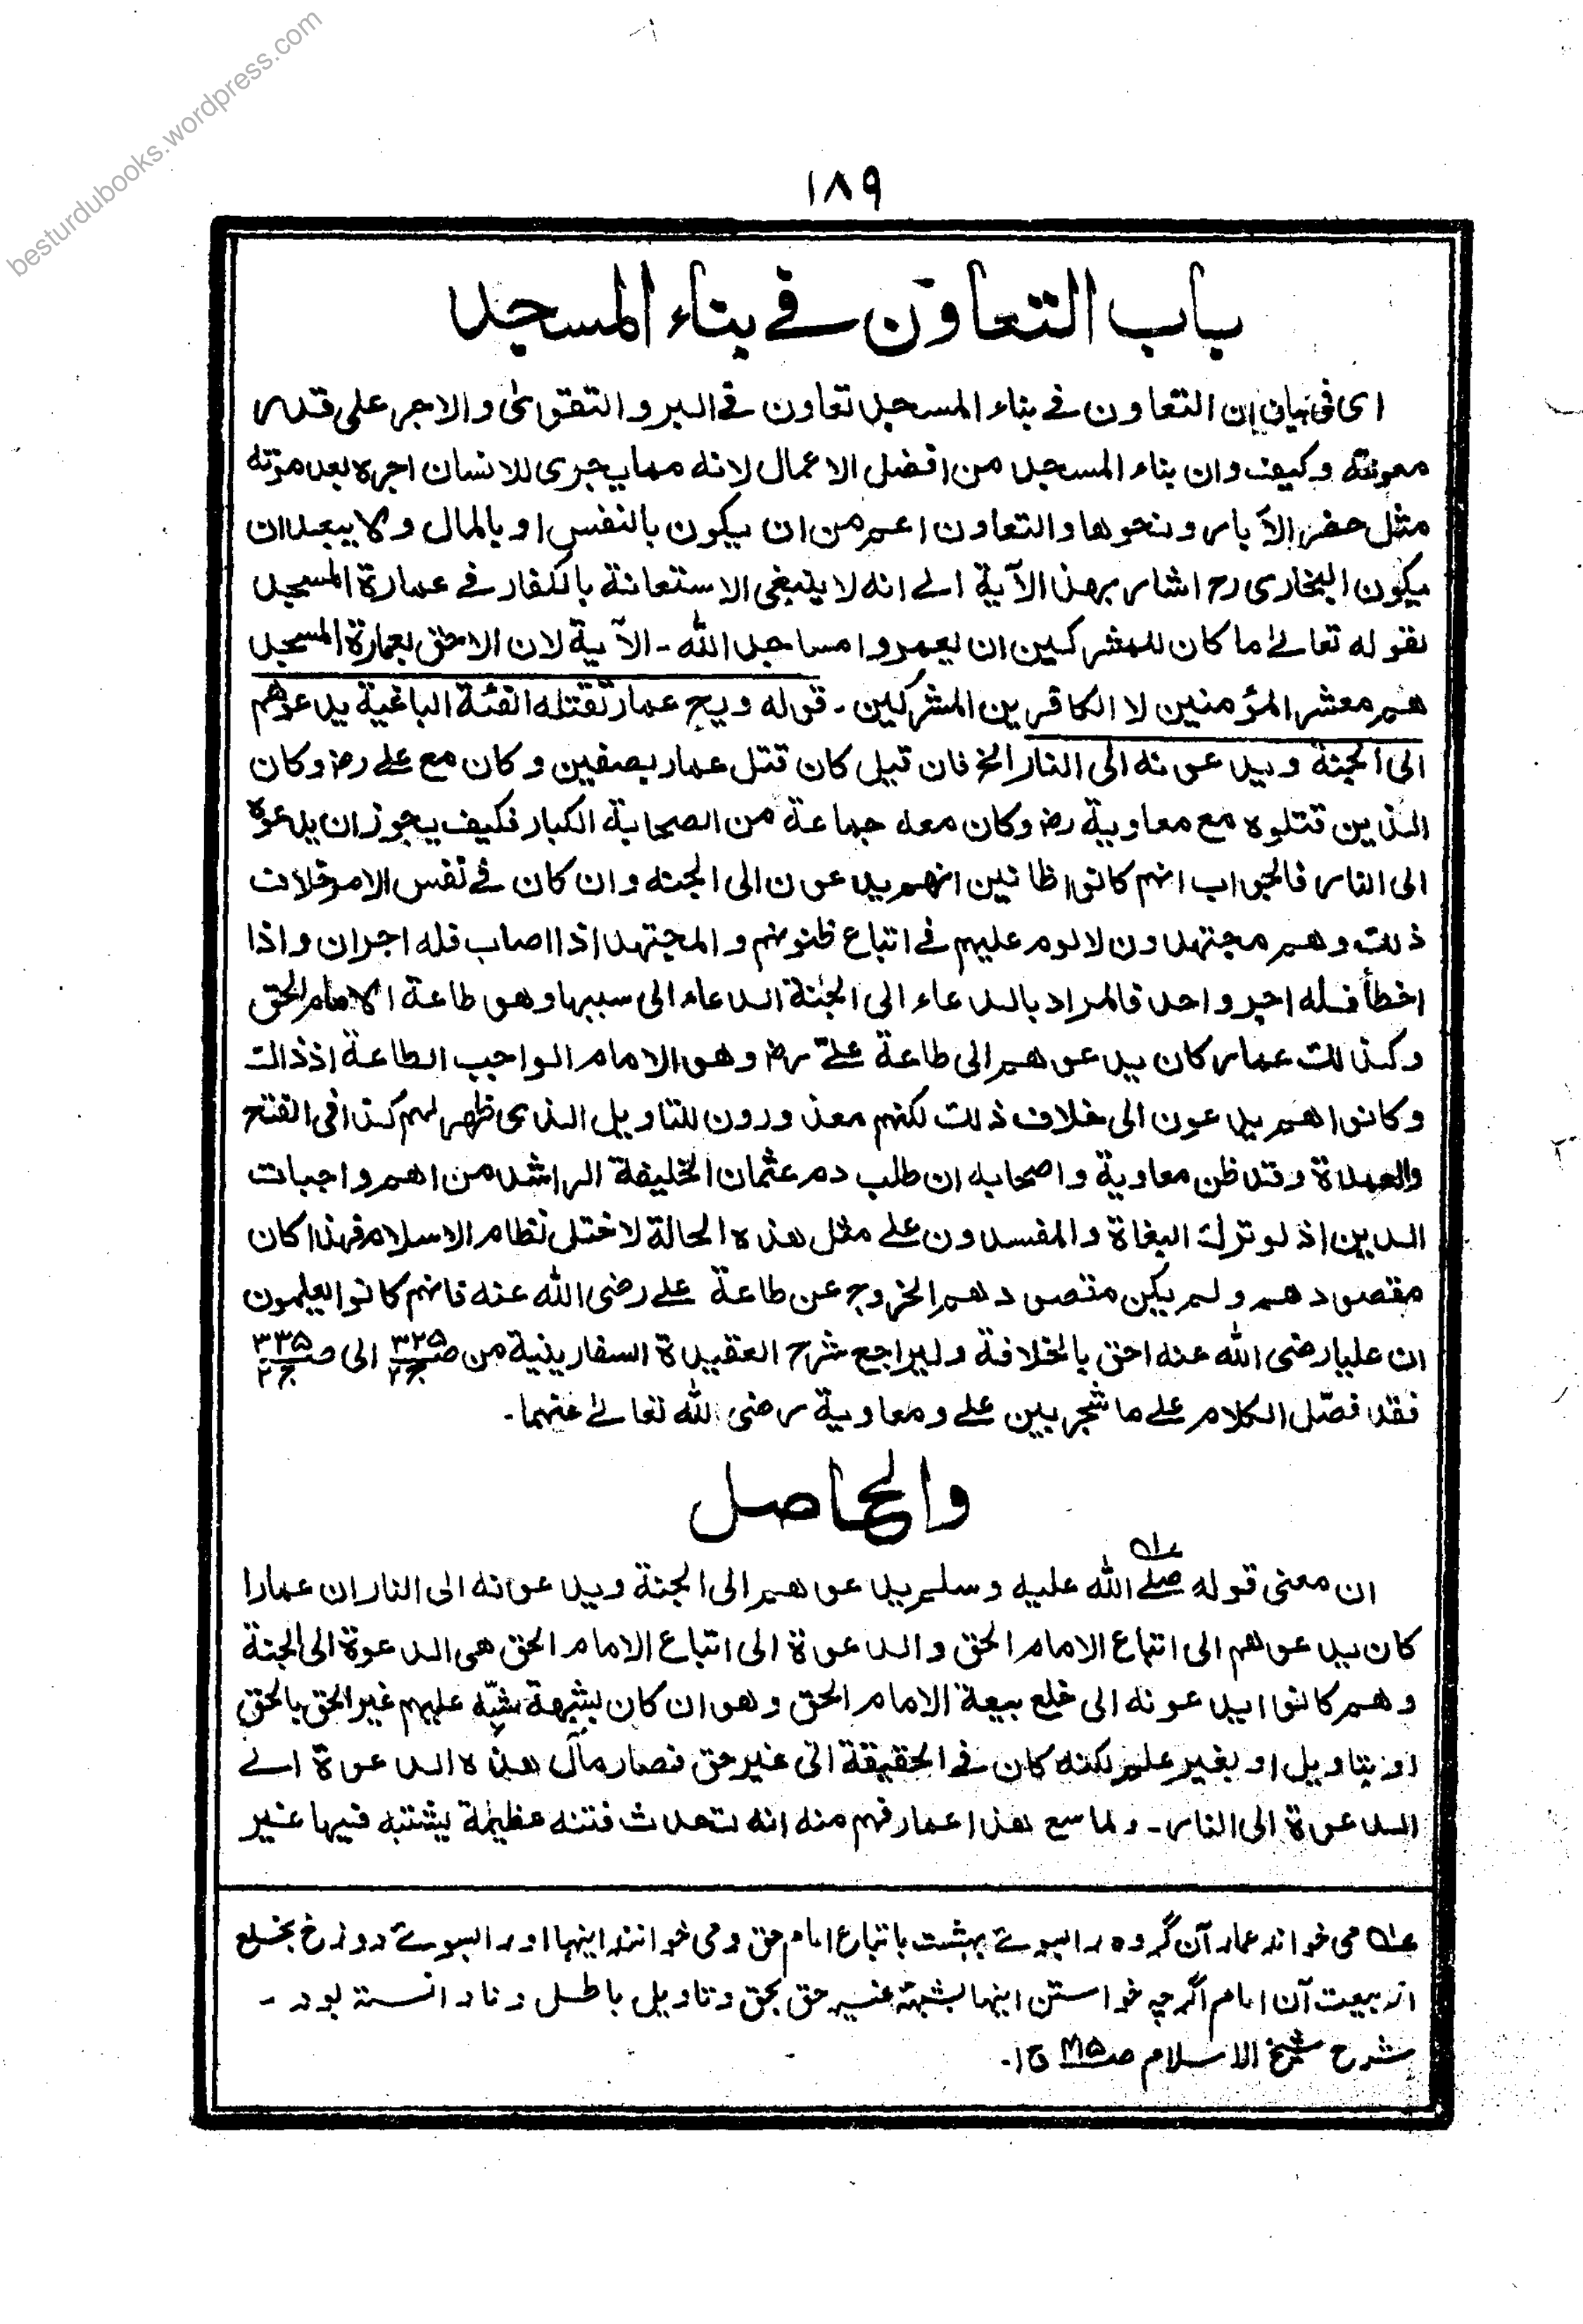 besturdubooks.wordpress.com
١٨٩
باب التعاون في بناء المسجد
اى فى بيان ان التعاون في بناء المسجد تعاون في البر و التقوىٰ و الاجر على قدر
معونته وكيف وان بناء المسجد من افضل الاعمال لانه مما يجرى للانسان اجره بعد موته
مثل حفر الآبار و نحوها و التعاون اعم من ان يكون بالنفس او بالمال ولا يبعد ان
يكون البخارى رح اشار بهذا الآية الے انه لا ينبغى الاستعانة بالكفار في عمارة المسجد
لقوله تعالےٰ ما كان للمشركين ان يعمروا مساجد الله - الآية لان الاحق بعمارة المسجد
هم معشر المؤمنين لا الكافرين المشركين - قوله ويح عمار تقتله الفئة الباغية يدعوهم
الى الجنة ويدعونه الى النار الخ فان قيل كان قتل عمار بصفين و كان مع علے رض وكان
الذين قتلوه مع معاوية رض وكان معه جماعة من الصحابة الكبار فكيف يجوز ان يدعوه
الى النار فالجواب انهم كانوا ظانين انهم يدعون الى الجنه و ان كان في نفس الامر خلاف
ذلك وهم مجتهدون لا لوم عليهم في اتباع ظنونهم و المجتهد اذا اصاب فله اجران و اذا
اخطأ فله اجر واحد فالمراد بالدعاء الى الجنة الدعاء الى سببها وهو طاعة الامام الحق
وكذلك عمار كان يدعوهم الى طاعة علےّ رض وهو الامام الواجب الطاعة اذذاك
وكانوا هم يدعون الى خلاف ذلك لكنهم معذورون للتاويل الذى ظهر لهم كذا فى الفتح
والعمدة وقد ظن معاوية و اصحابه ان طلب دم عثمان الخليفة الراشد من اهم واجبات
الدين اذ لو ترك البغاة والمفسدون علے مثل هذه الحالة لاختل نظام الاسلام فهذا كان
مقصودهم ولم يكن مقصودهم الخروج عن طاعة علے رضى الله عنه فانهم كانوا يعلمون
ان عليا رضى الله عنه احق بالخلافة وليراجع شرح العقيدة السفارينية من ص٣٢٥ ج٢ الى ص٣٣٥ ج٢
فقد فصّل الكلام علے ما شجر بين علے ومعاوية رضى الله تعالےٰ عنهما -
والحاصل
ان معنى قوله صلے الله عليه وسلم يدعوهم الى الجنة ويدعونه الى النار ان عمارا
كان يدعوهم الى اتباع الامام الحق والدعوة الى اتباع الامام الحق هى الدعوة الى الجنة
وهم كانوا يدعونه الى خلع بيعة الامام الحق وهو ان كان لشبهة شبّه عليهم غير الحق بالحق
او بتاويل او بغير علم لكنه كان في الحقيقة الى غير حق فصار مآل هذه الدعوة الے
الدعوة الى النار - ولما سمع هذا عمار فهم منه انه تحدث فتنه عظيمة يشتبه فيها غير
عه مى خواند عمار آن گروه را بسوئے بهشت باتباع امام حق ومى خوانند اينها او را بسوئے دوزخ بخلع
از بيعت آن امام اگرچه خواستن اينها بشبهة غير حق بحق وتاويل باطل و نادانسته بود -
شرح شيخ الاسلام ص ج١ -